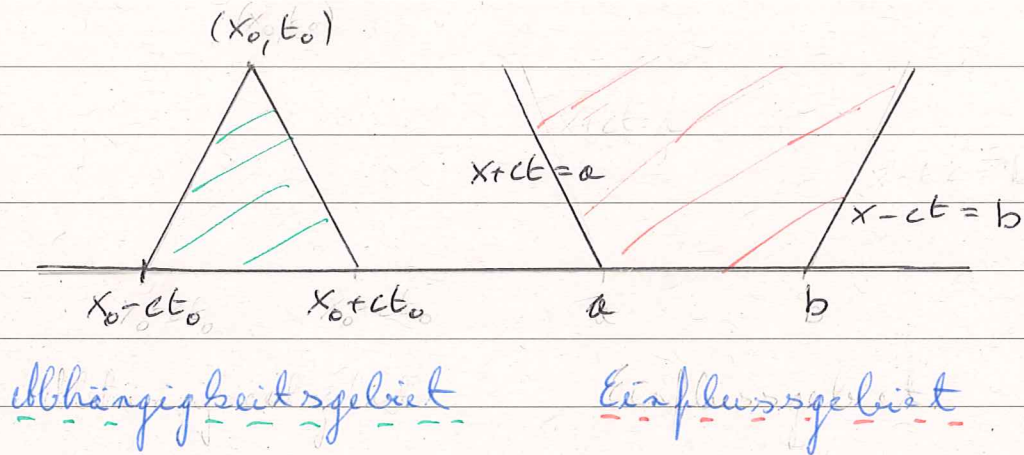 (x₀, t₀)
x+ct=a
x-ct=b
x₀-ct₀ x₀+ct₀ a b
Abhängigkeitsgebiet Einflussgebiet